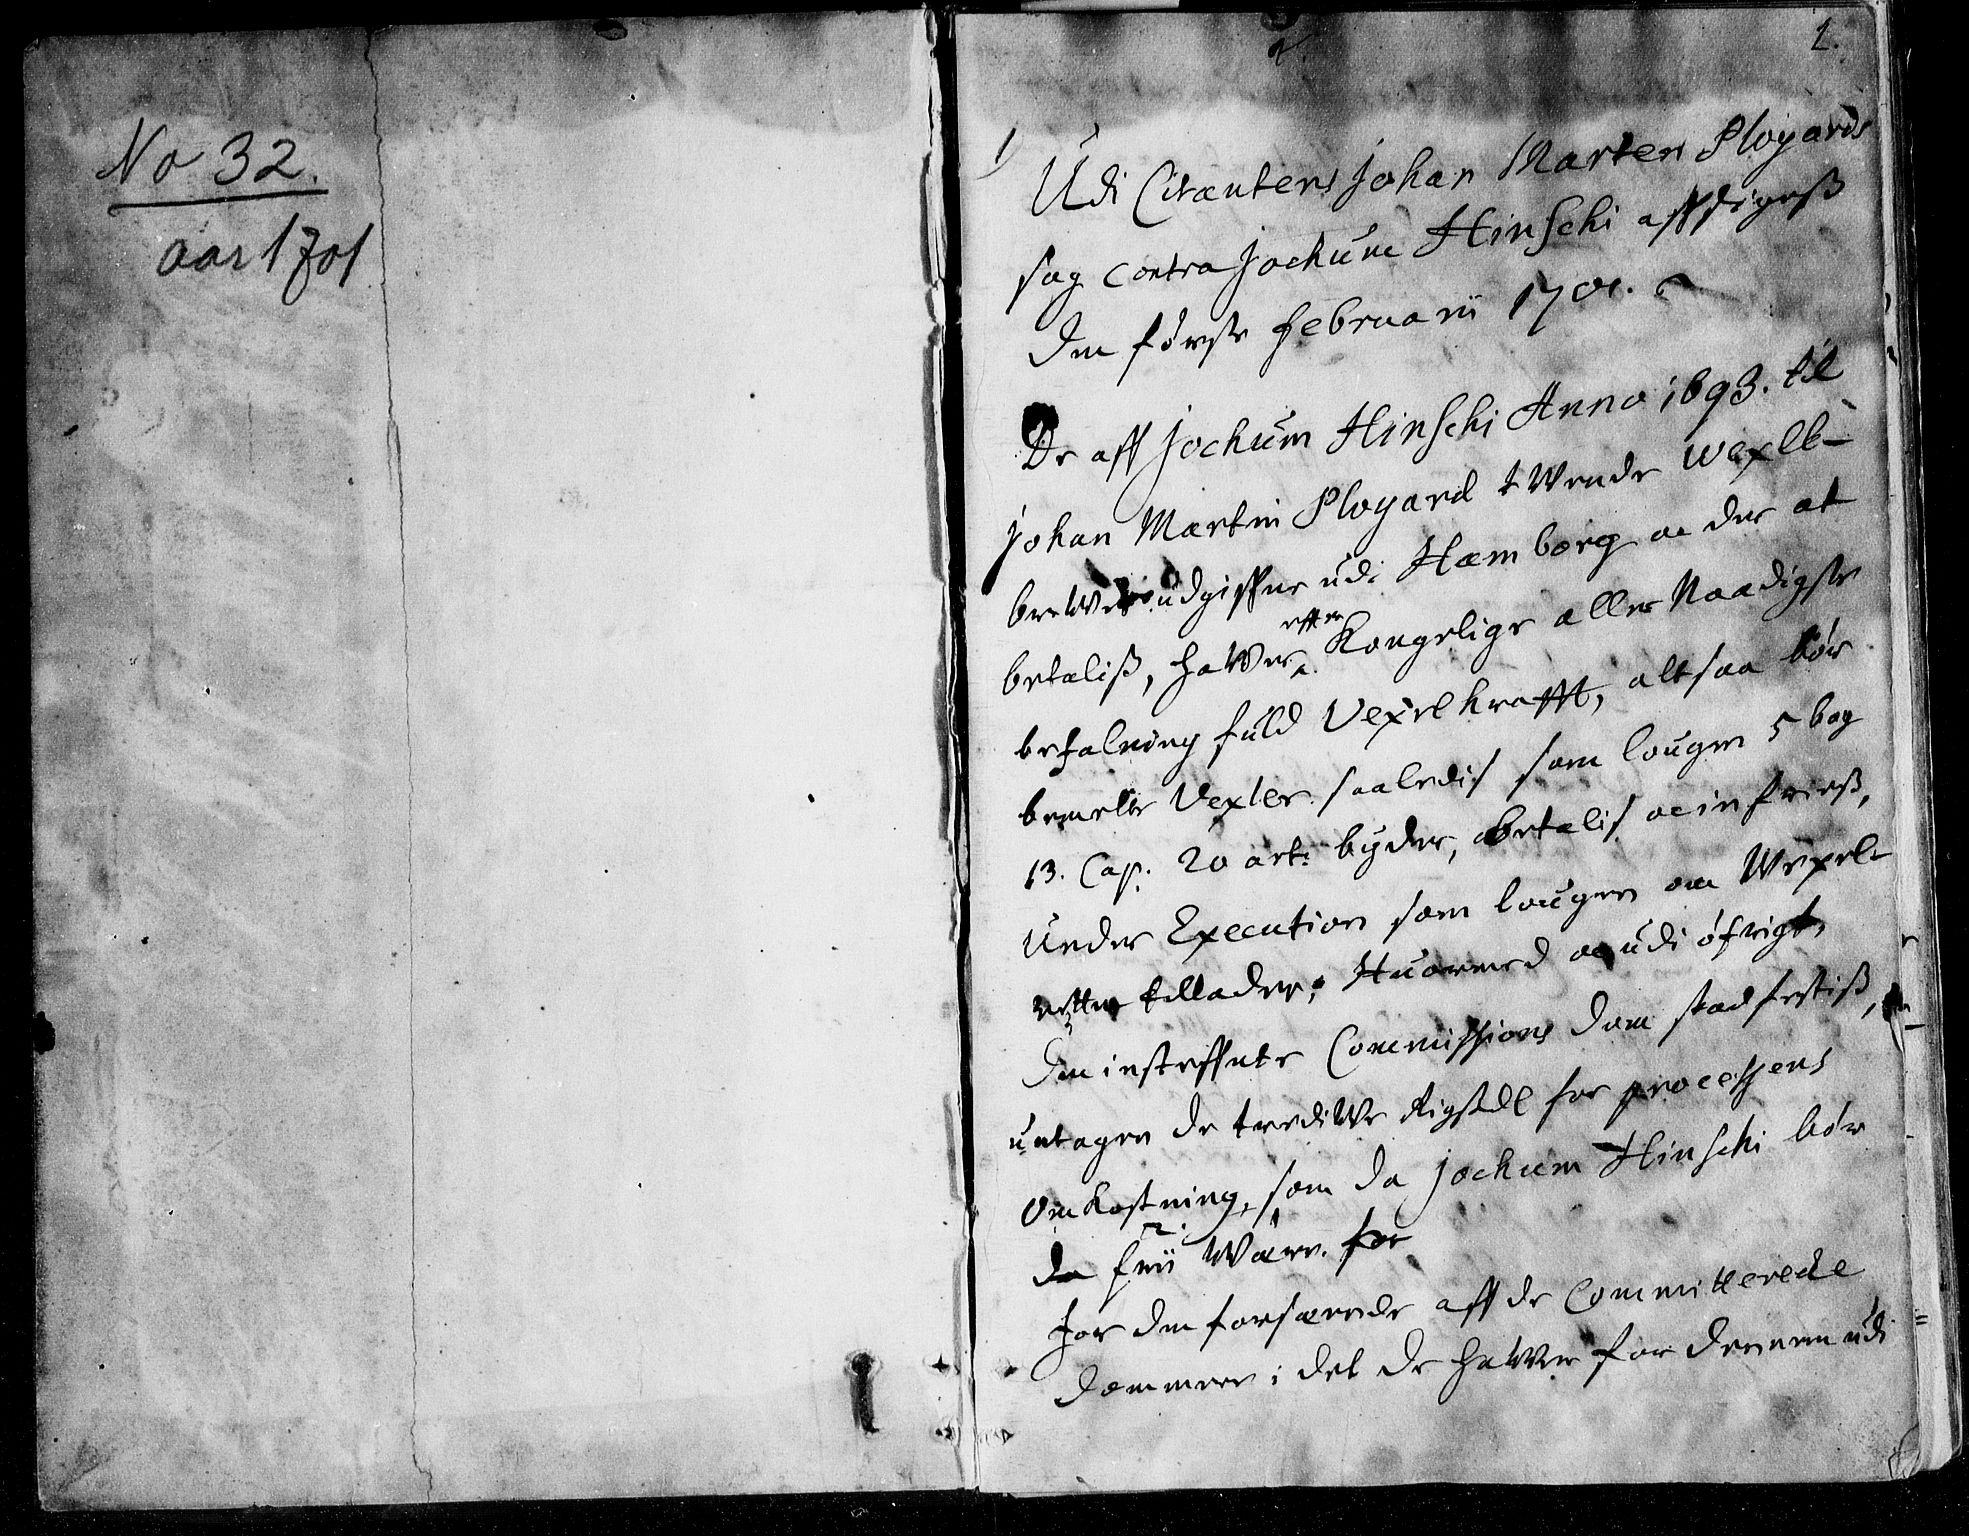 No 32.
aar 1701
2.
1
Udi Citantens Johan Marten Ployards
sag contra Jochum Hinschi affsiges
den første Februarii 1701.
De aff Jochum Hinschi Anno 1693. til
Johan Martin Ployard tvende wexell-
breWe udgiffne udi Hamborg oc der at
betalis, haWer efter Kongelige aller Naadigste
befalning fuld Vexel krafft, alt saa bør
bemelte Vexler saaledis som lougen 5 bog
13. Cap. 20 art: byder, betalis oc infries,
under Execution som lougen om Wexel-
retten tillader; Huormed oc udi øfrigt,
den indsteffnte Commissions dom stadfestis,
untagen de trediWe Rigsdl for processens
Omkostning, som da Jochum Hinschi bør
da frii Være. for
for den forfarende aff de Committerede
dommere i det de haWer for dennem udi